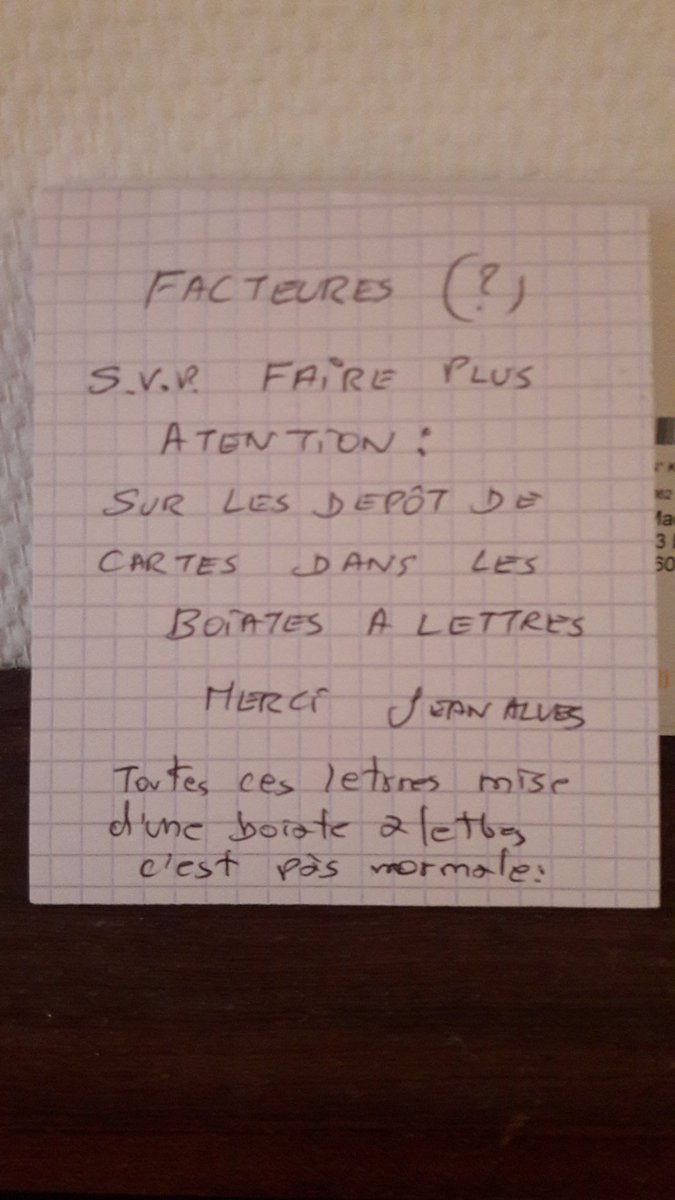 FACTEURES (?)
S.V.P. FAIRE PLUS
ATENTION :
SUR LES DEPÔT DE
CARTES DANS LES
BOÎATES A LETTRES
MERCI JEAN ALVES
Toutes ces letsres mise
d'une boiate a lettres
c'est pàs normale.